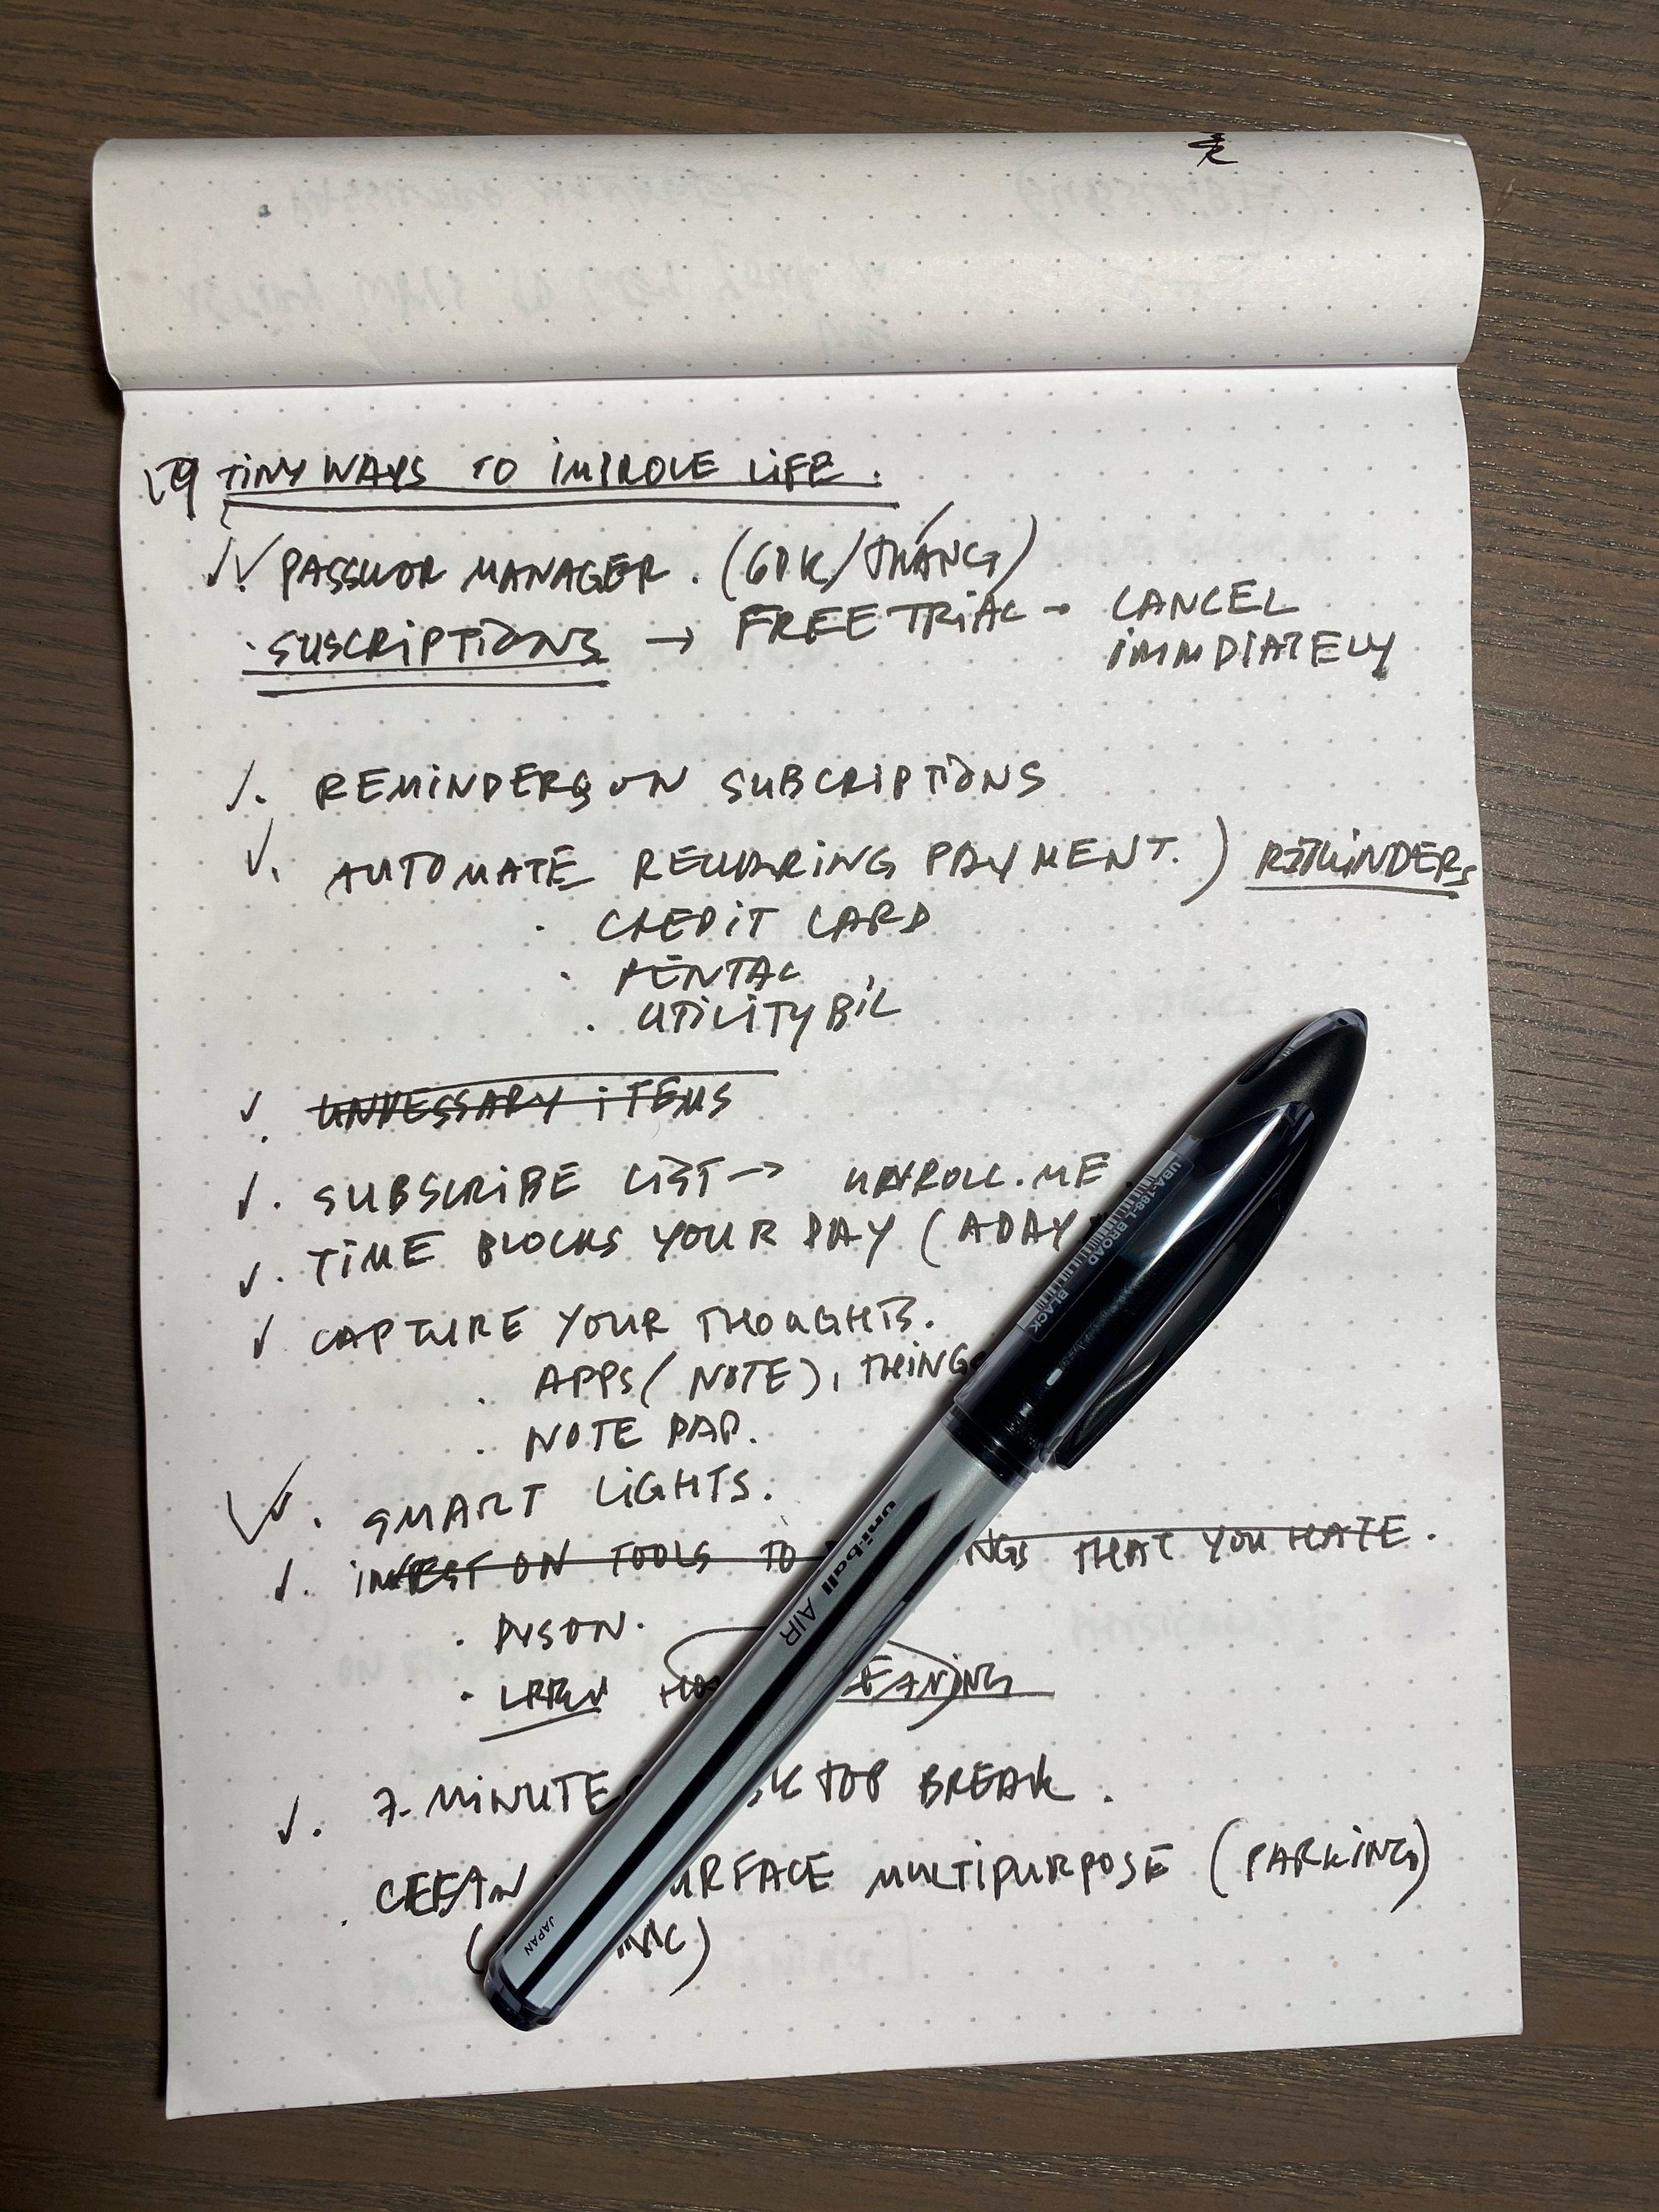 19 TINY WAYS TO IMPROVE LIFE.
PASSWOR MANAGER. (60K/THÁNG)
· SUSCRIPTIONS → FREE TRIAL → CANCEL
IMMDIATELY
· REMINDERS ON SUBCRIPTIONS
· AUTOMATE RECURRING PAYMENT. ) REMINDERS
· CREDIT CARD
· RENTAL
· UTILITY BIL
· UNNESSARY ITEMS
· SUBSCRIBE LIST → UNROLL.ME
· TIME BLOCKS YOUR DAY (ADAY
CAPTURE YOUR THOUGHTS.
· APPS (NOTE), THINGS
· NOTE PAP.
· SMART LIGHTS.
· INVEST ON TOOLS TO NGS THAT YOU HATE.
· DYSON.
· EANING
· 7-MINUTE SK TOP BREAK.
· CLEAN URFACE MULTIPURPOSE (PARKING)
UBA-188-L BROAD
BLACK
uni-ball AIR
JAPAN